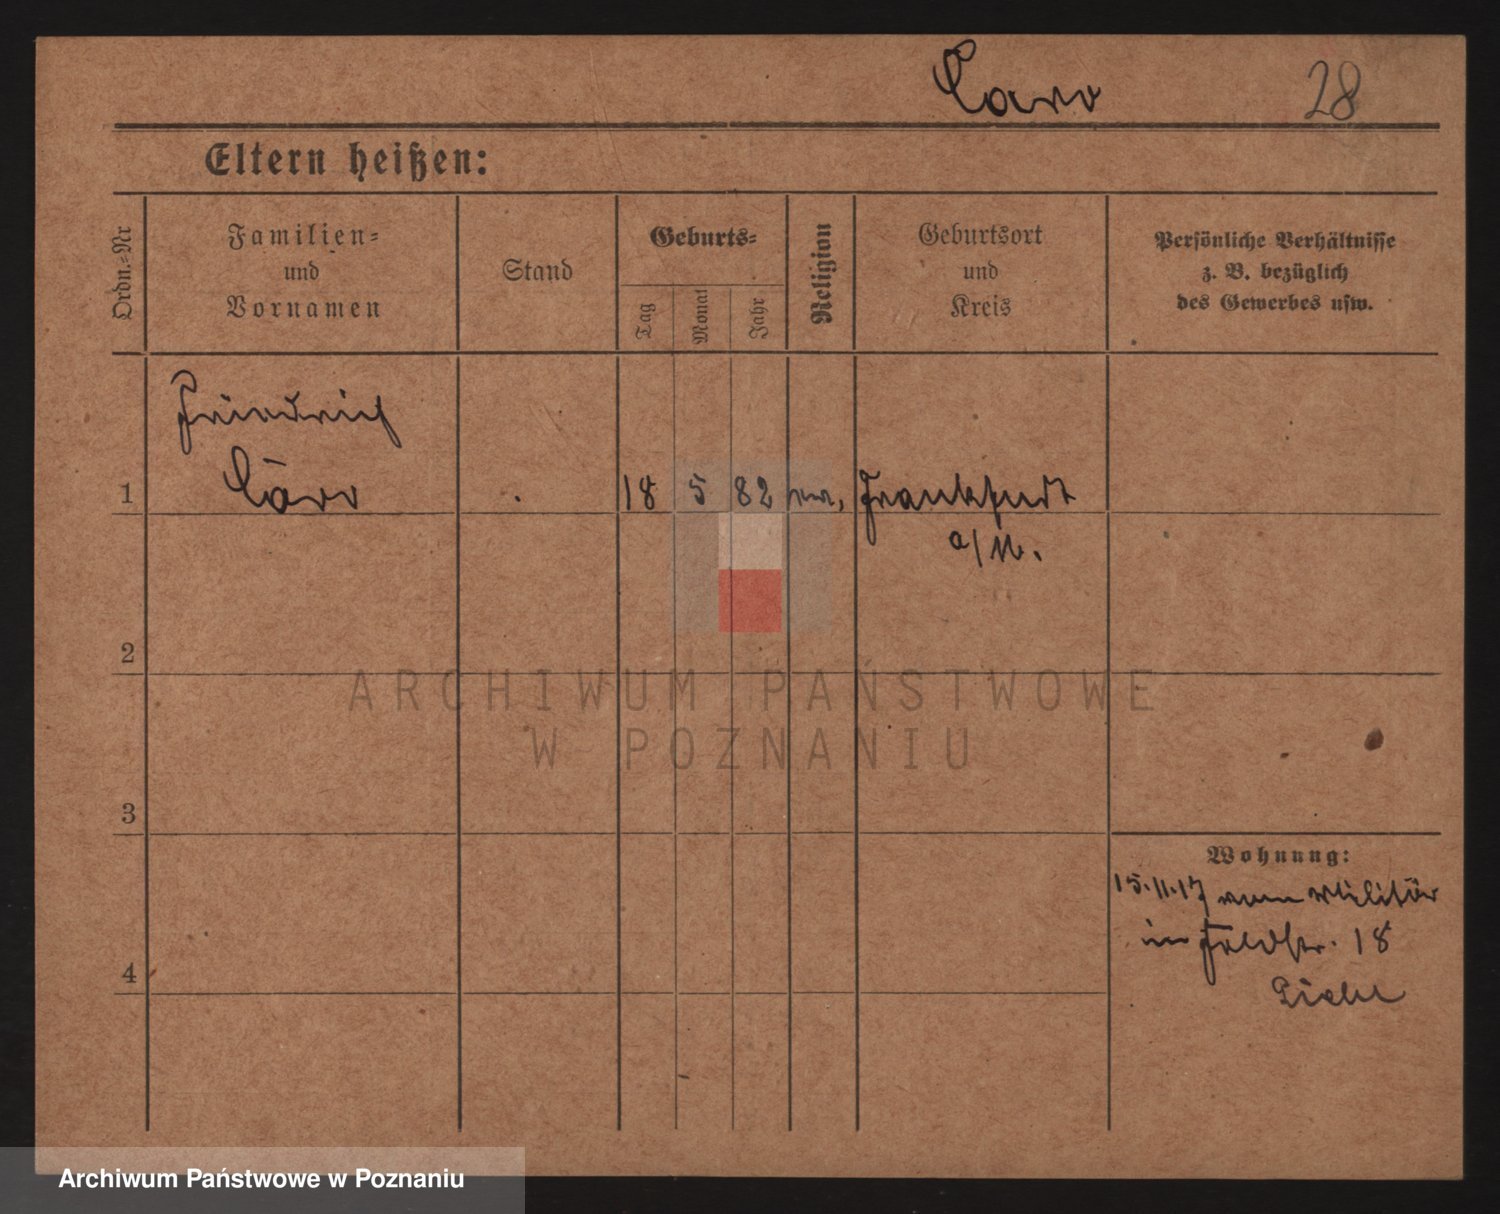 Caro 28
Eltern heißen:
Ordn.-Nr
Familien-
und
Vornamen
Stand
Geburts-
Tag
Monat
Jahr
Religion
Geburtsort
und
Kreis
Persönliche Verhältnisse
z. B. bezüglich
des Gewerbes usw.
Friedrich
1 Caro 18 5 82 Frankfurt
a/M.
2
ARCHIWUM PAŃSTWOWE
W POZNANIU
3
Wohnung:
15.11.17 vom Militär
in Feldstr. 18
4
Archiwum Państwowe w Poznaniu